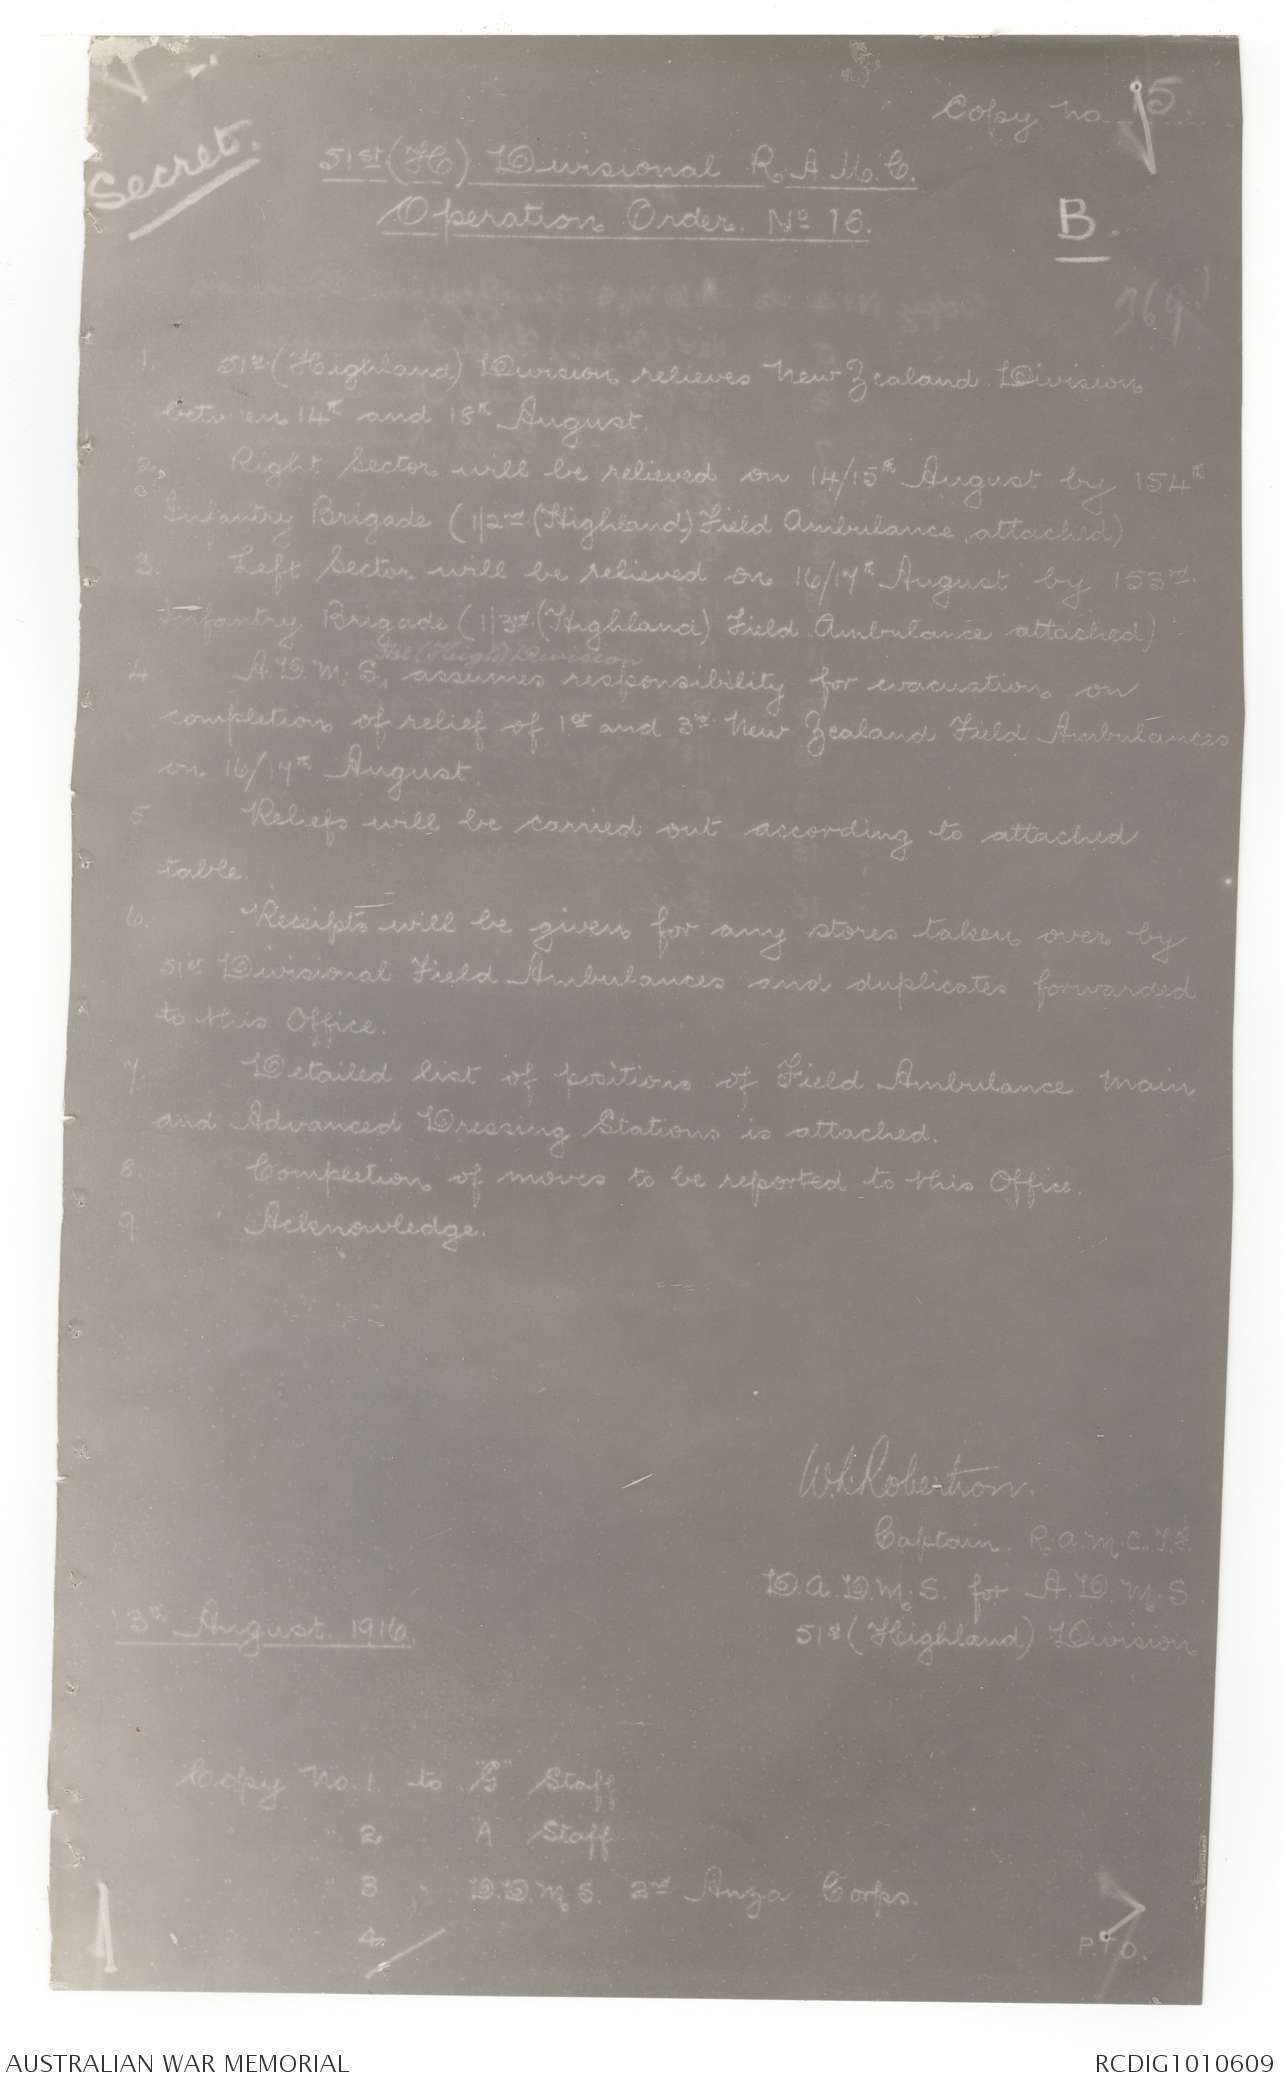 Copy No 15
Secret.
51st (H) Divisional R.A.M.C.
Operation Order. No 16.
B.
369
1. 51st (Highland) Division relieves New Zealand Division
between 14th and 18th August.
2. Right Sector will be relieved on 14/15th August by 154th
Infantry Brigade (1/2nd (Highland) Field Ambulance, attached)
3. Left Sector will be relieved on 16/17th August by 153rd
Infantry Brigade (1/3rd (Highland) Field Ambulance attached)
51st (High) Division
4 A.D.M.S., assumes responsibility for evacuation on
completion of relief of 1st and 3rd New Zealand Field Ambulances
on 16/17th August.
5 Reliefs will be carried out according to attached
table.
6. Receipts will be given for any stores taken over by
51st Divisional Field Ambulances and duplicates forwarded
to this Office.
7. Detailed list of positions of Field Ambulance Main
and Advanced Dressing Stations is attached.
8. Completion of moves to be reported to this Office.
9. Acknowledge.
Robertson.
Captain. R.A.M.C.T.F.
D.A.D.M.S. for A.D.M.S.
51st (Highland) Division
13th August. 1916.
Copy No. 1. to "G" Staff
" " 2 " A Staff
" " 3 " D.D.M.S. 2nd Anza Corps.
4
P.T.O.
AUSTRALIAN WAR MEMORIAL
RCDIG1010609